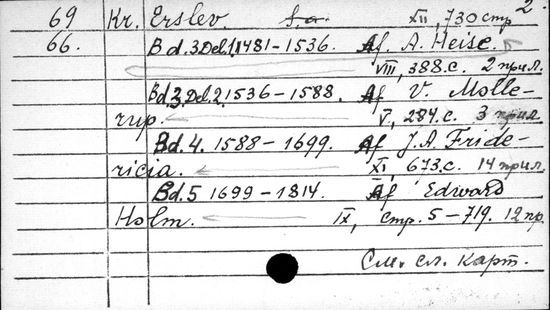 2.
69 Kr. Erslev s.a. XII, 730 стр
66. Bd. 3 Del 1, 1481-1536. Af A. Heise.
VIII, 388 с. 2 прил.
Bd. 3. Del. 2. 1536-1588. Af V. Molle-
rup. V, 284 с. 3 прил
Bd. 4. 1588-1699. Af J.A. Fride-
ricia. XI, 673 с. 14 прил.
Bd. 5 1699-1814. Af Edward
Holm. IX, стр. 5-719. 12 пр.
См. сл. карт.